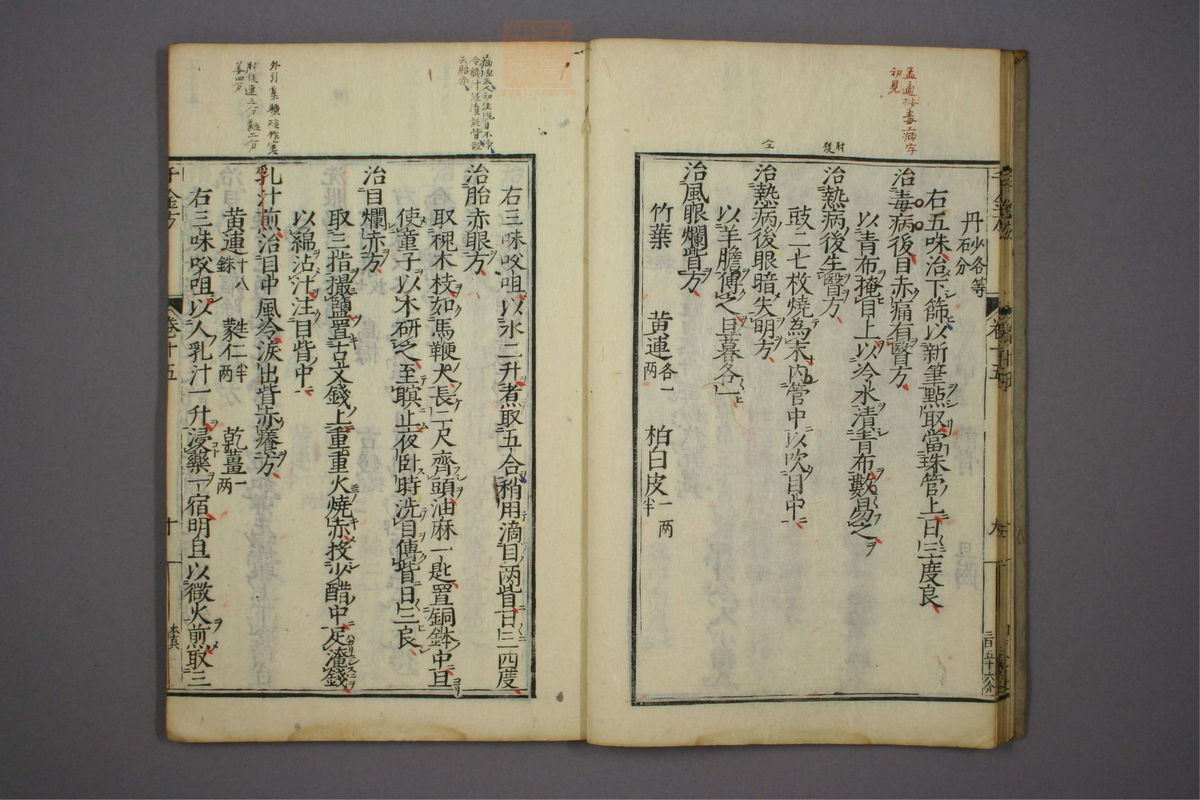 孟通抄毒病字
初見
肘後
仝
丹砂各等分
右五味治下篩以新筆點取當珠管上日三度良
治毒病後目赤痛有瞖方
以青布掩目上以冷水漬青布數易之
治熱病後生瞖方
豉二七枚燒為末內管中以吹目中
治熱病後眼暗失明方
以羊膽傅之旦暮各一
治風眼爛眥方
竹葉 黃連各一兩 柏白皮一兩半
右三味㕮咀以水二升煮取五合稍用滴目兩眥日三四度
治胎赤眼方
取槐木枝如馬鞭大長二尺齊頭油麻一匙置銅鉢中旦
使童子以木研之至瞑止夜臥時洗目傅眥日三良
治目爛赤方
取三指撮鹽置古文錢上重重火燒赤投少醋中足淹錢
以綿沾汁注目眥中
乳汁煎治目中風冷淚出眥赤癢方
黃連十八銖 蕤仁二兩半 乾薑一兩
右三味㕮咀以人乳汁一升浸藥一宿明旦以微火煎取三
千金方
卷十五
十